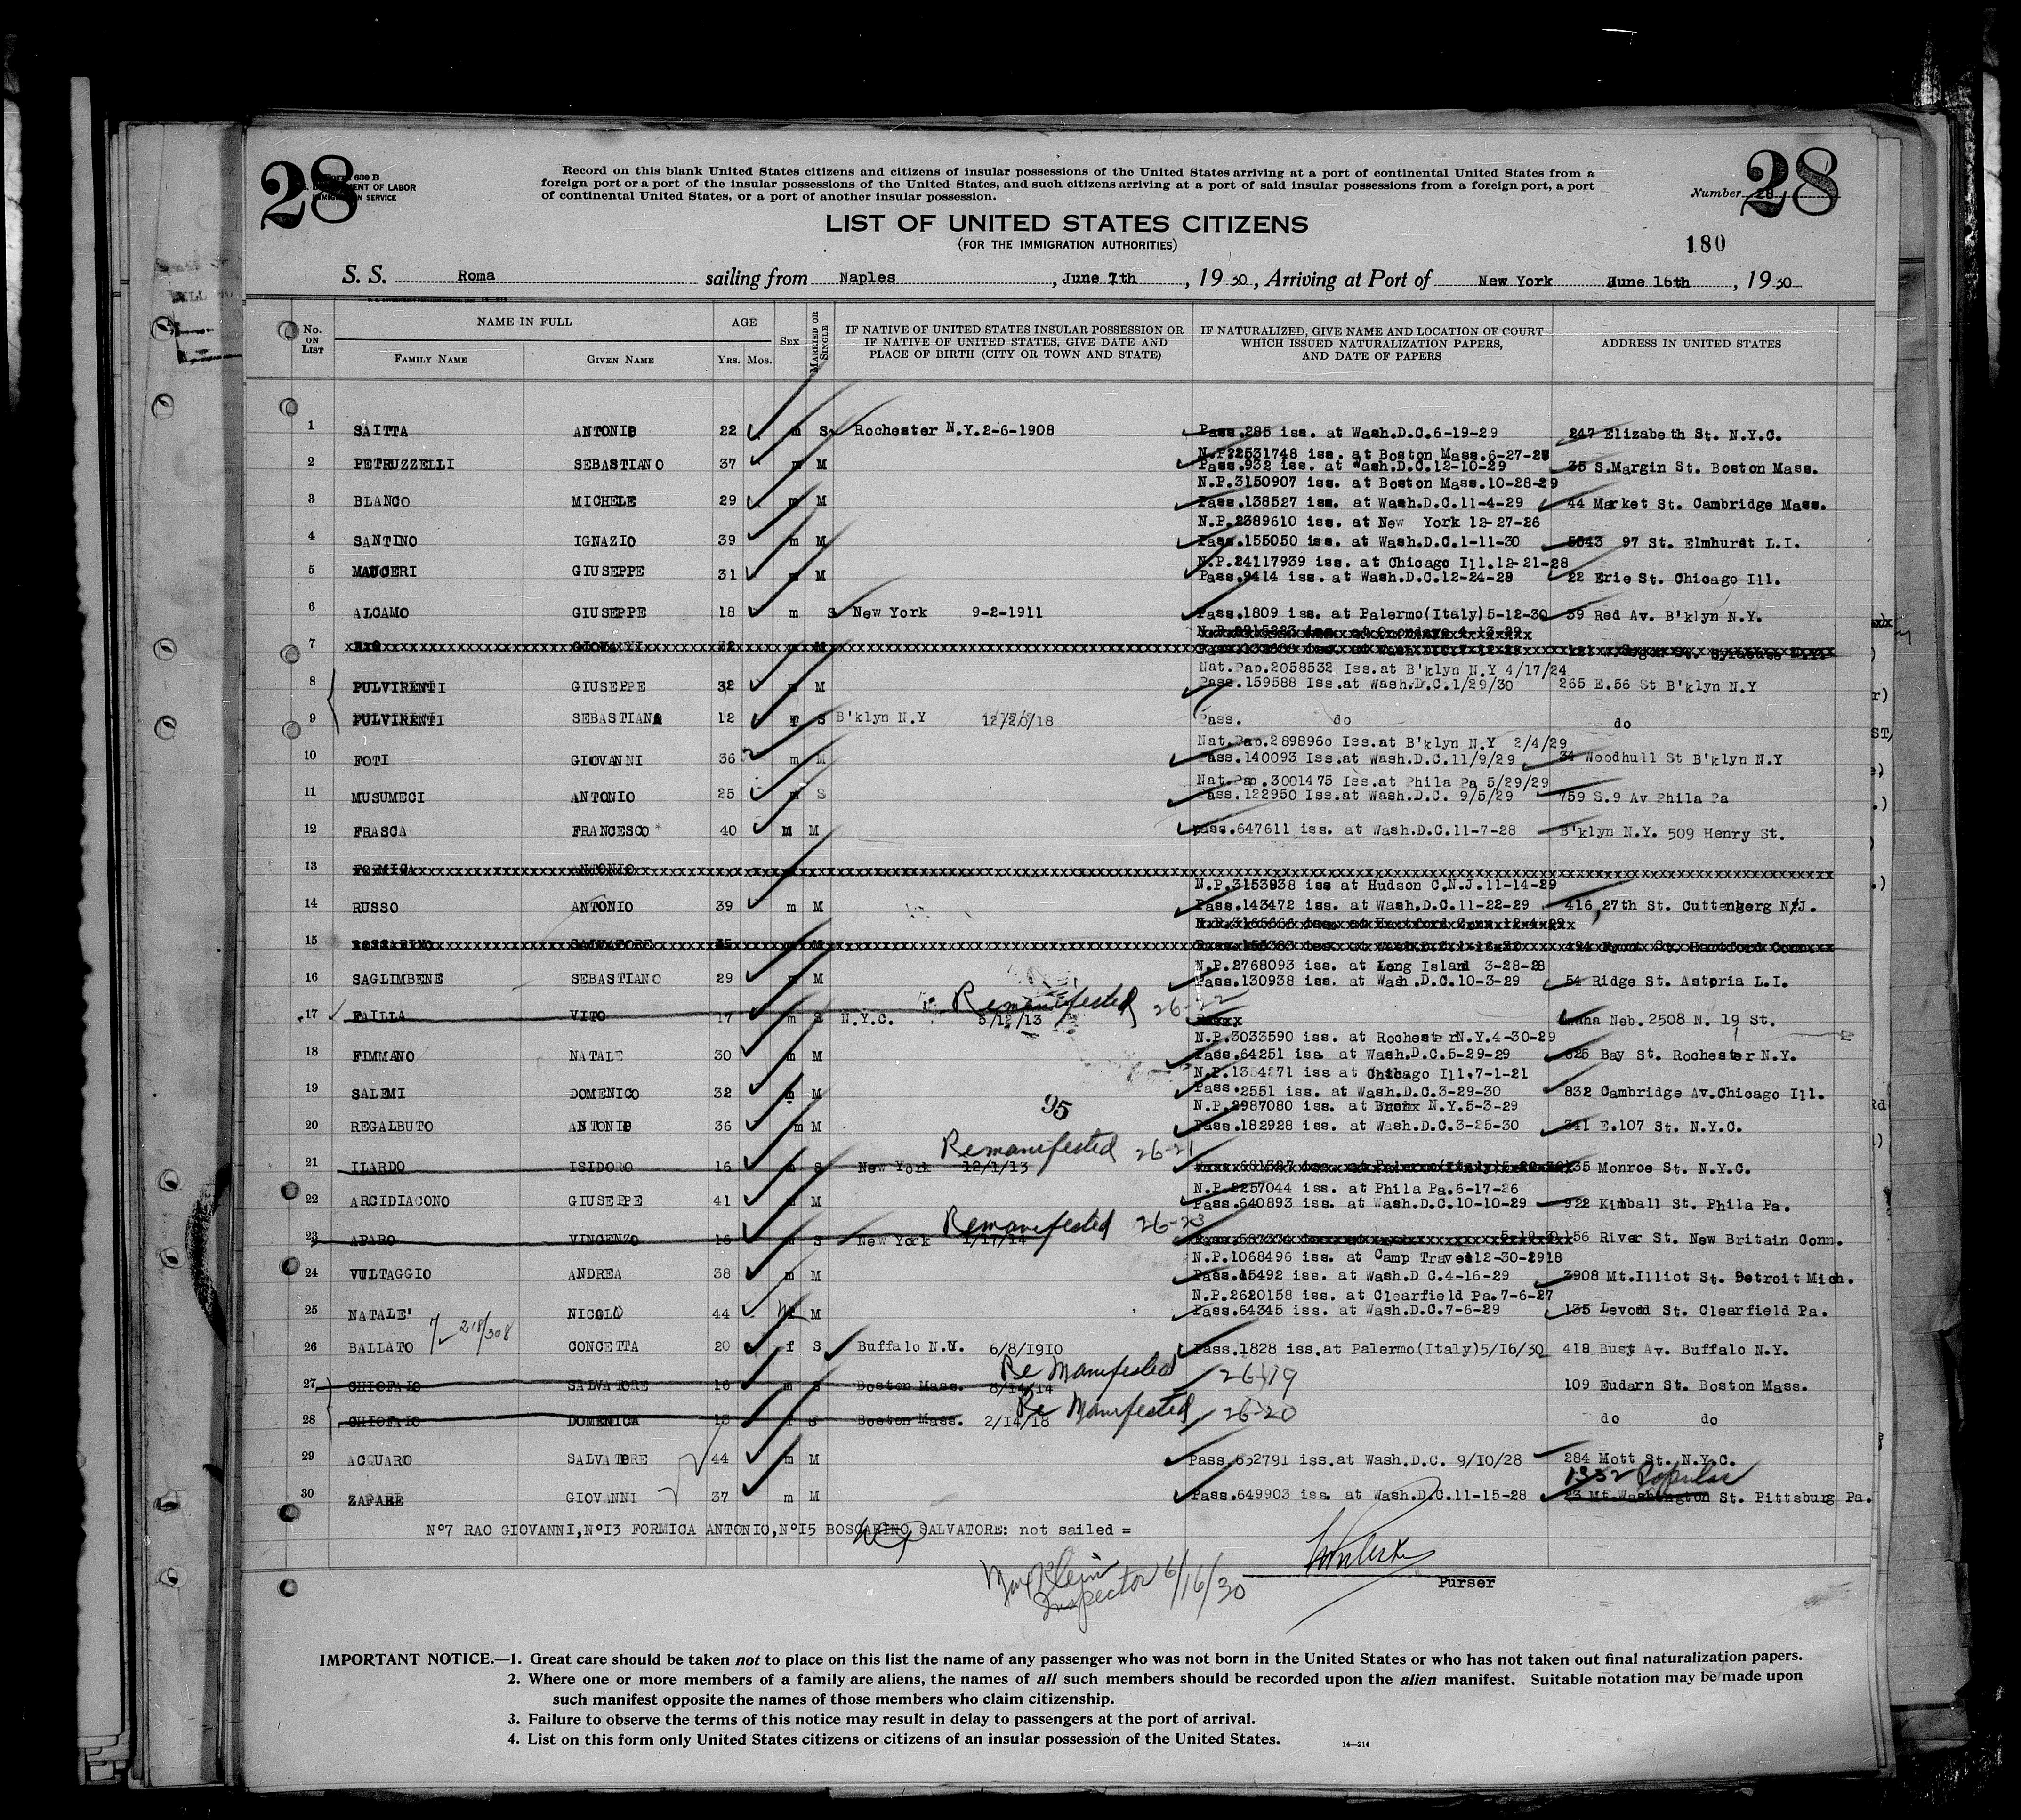 28
Form 630 B
U.S. DEPARTMENT OF LABOR
IMMIGRATION SERVICE
Record on this blank United States citizens and citizens of insular possessions of the United States arriving at a port of continental United States from a
foreign port or a port of the insular possessions of the United States, and such citizens arriving at a port of said insular possessions from a foreign port, a port
of continental United States, or a port of another insular possession.
Number 28
28
LIST OF UNITED STATES CITIZENS
(FOR THE IMMIGRATION AUTHORITIES)
180
S. S. Roma sailing from Naples , June 7th , 1930 , Arriving at Port of New York June 16th , 1930
No. ON LIST NAME IN FULL FAMILY NAME GIVEN NAME AGE YRS. MOS. SEX MARRIED OR SINGLE
IF NATIVE OF UNITED STATES INSULAR POSSESSION OR IF NATIVE OF UNITED STATES, GIVE DATE AND PLACE OF BIRTH (CITY OR TOWN AND STATE)
IF NATURALIZED, GIVE NAME AND LOCATION OF COURT WHICH ISSUED NATURALIZATION PAPERS, AND DATE OF PAPERS
ADDRESS IN UNITED STATES
1 SAITTA ANTONIO 22 m S Rochester N.Y.2-6-1908 Pass.285 iss. at Wash.D.C.6-19-29 247 Elizabeth St. N.Y.C.
N.P.22531748 iss. at Boston Mass.6-27-28
2 PETRUZZELLI SEBASTIANO 37 m M Pass.932 iss. at Wash.D.C.12-10-29 35 S.Margin St. Boston Mass.
N.P.3150907 iss. at Boston Mass.10-28-29
3 BLANCO MICHELE 29 m M Pass.138527 iss. at Wash.D.C.11-4-29 44 Market St. Cambridge Mass.
N.P.2389610 iss. at New York 12-27-26
4 SANTINO IGNAZIO 39 m M Pass.155050 iss. at Wash.D.C.1-11-30 5543 97 St. Elmhurdt L.I.
N.P.24117939 iss. at Chicago Ill.12-21-28
5 MAUCERI GIUSEPPE 31 m M Pass.9414 iss. at Wash.D.C.12-24-28 22 Erie St. Chicago Ill.
6 ALCAMO GIUSEPPE 18 m S New York 9-2-1911 Pass.1809 iss. at Palermo(Italy)5-12-30 39 Red Av. B'klyn N.Y.
7 RAO GIOVANNI 32 m M
Nat.Pap.2058532 Iss.at B'klyn N.Y 4/17/24
8 PULVIRENTI GIUSEPPE 32 m M Pass.159588 Iss.at Wash.D.C.1/29/30 265 E.56 St B'klyn N.Y
9 PULVIRENTI SEBASTIANA 12 f S B'klyn N.Y 12/20/18 Pass. do do
Nat.Pap.2898960 Iss.at B'klyn N.Y 2/4/29
10 FOTI GIOVANNI 36 m M Pass.140093 Iss.at Wash.D.C.11/9/29 34 Woodhull St B'klyn N.Y
Nat.Pap.3001475 Iss.at Phila Pa 5/29/29
11 MUSUMECI ANTONIO 25 m S Pass.122950 Iss.at Wash.D.C. 9/5/29 759 S.9 Av Phila Pa
12 FRASCA FRANCESCO 40 M M pass.647611 iss. at Wash.D.C.11-7-28 B'klyn N.Y. 509 Henry St.
13 FORMICA ANTONIO
N.P.3153938 iss at Hudson C.N.J.11-14-29
14 RUSSO ANTONIO 39 m M Pass.143472 iss. at Wash.D.C.11-22-29 416,27th St. Cuttenberg N.J.
N.P.3165666 iss. at Hartford Conn.12-4-29
15 BOSCARINO SALVATORE 35 m M
N.P.2768093 iss. at Long Island 3-28-28
16 SAGLIMBENE SEBASTIANO 29 m M Pass.130938 iss. at Wash.D.C.10-3-29 54 Ridge St. Astoria L.I.
Remanifested 26-22
17 FAILLA VITO 17 m S N.Y.C. 5/12/13 Omaha Neb. 2508 N. 19 St.
N.P.3033590 iss. at Rochester N.Y.4-30-29
18 FIMMANO NATALE 30 m M Pass.64251 iss at Wash.D.C.5-29-29 625 Bay St. Rochester N.Y.
N.P.1354271 iss at Chicago Ill.7-1-21
19 SALEMI DOMENICO 32 m M Pass.2551 iss. at Wash.D.C.3-29-30 832 Cambridge Av.Chicago Ill.
95
N.P.2987080 iss. at Bronx N.Y.5-3-29
20 REGALBUTO ANTONIO 36 m M Pass.182928 iss. at Wash.D.C.3-25-30 341 E.107 St. N.Y.C.
Remanifested 26-21
21 ILARDO ISIDORO 16 m S New York 12/1/13 135 Monroe St. N.Y.C.
N.P.2257044 iss. at Phila Pa.6-17-26
22 ARCIDIACONO GIUSEPPE 41 m M Pass.640893 iss. at Wash.D.C.10-10-29 922 Kimball St. Phila Pa.
Remanifested 26-23
23 APARO VINCENZO 16 m S New York 1/17/14 5-19-30 156 River St. New Britain Conn.
N.P.1068496 iss. at Camp Traves12-30-2918
24 VULTAGGIO ANDREA 38 m M Pass.15492 iss. at Wash.D C.4-16-29 3908 Mt.Illiot St. Detroit Mich.
N.P.2620158 iss. at Clearfield Pa.7-6-27
25 NATALE' NICOLO 44 M M Pass.64345 iss. at Wash.D.C.7-6-29 135 Levodd St. Clearfield Pa.
26 BALLATO 7-218/308 CONCETTA 20 f S Buffalo N.Y. 6/8/1910 Pass.1828 iss.at Palermo(Italy)5/16/30 418 Busy Av. Buffalo N.Y.
Re Manifested 26-19
27 CHIOFALO SALVATORE 16 m S Boston Mass. 8/14/14 109 Eudarn St. Boston Mass.
Re Manifested 26-20
28 CHIOFALO DOMENICA f S Boston Mass. 2/14/18 do do
29 ACQUARO SALVATORE 44 m M Pass.652791 iss.at Wash.D.C. 9/10/28 284 Mott St. N.Y.C.
1352 Popular
30 ZAPARE GIOVANNI 37 m M Pass.649903 iss. at Wash.D.C.11-15-28 23 Mt.Washington St. Pittsburg Pa.
N°7 RAO GIOVANNI,N°I3 FORMICA ANTONIO,N°I5 BOSCARINO SALVATORE: not sailed =
Max Klein
Inspector 6/16/30
Purser
IMPORTANT NOTICE.—1. Great care should be taken not to place on this list the name of any passenger who was not born in the United States or who has not taken out final naturalization papers.
2. Where one or more members of a family are aliens, the names of all such members should be recorded upon the alien manifest. Suitable notation may be made upon
such manifest opposite the names of those members who claim citizenship.
3. Failure to observe the terms of this notice may result in delay to passengers at the port of arrival.
4. List on this form only United States citizens or citizens of an insular possession of the United States.
14—214